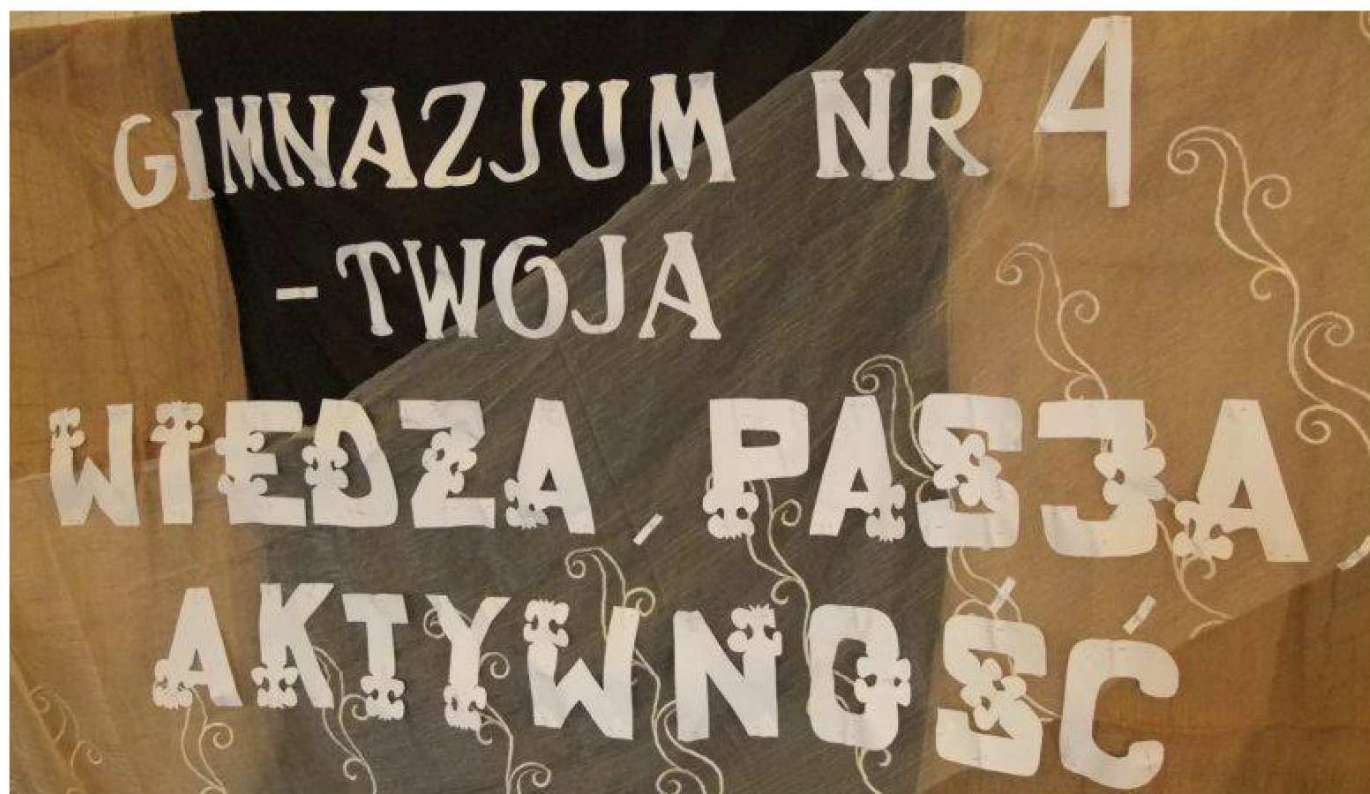 GIMNAZJUM NR 4
- TWOJA
WIEDZA, PASJA
AKTYWNOŚĆ